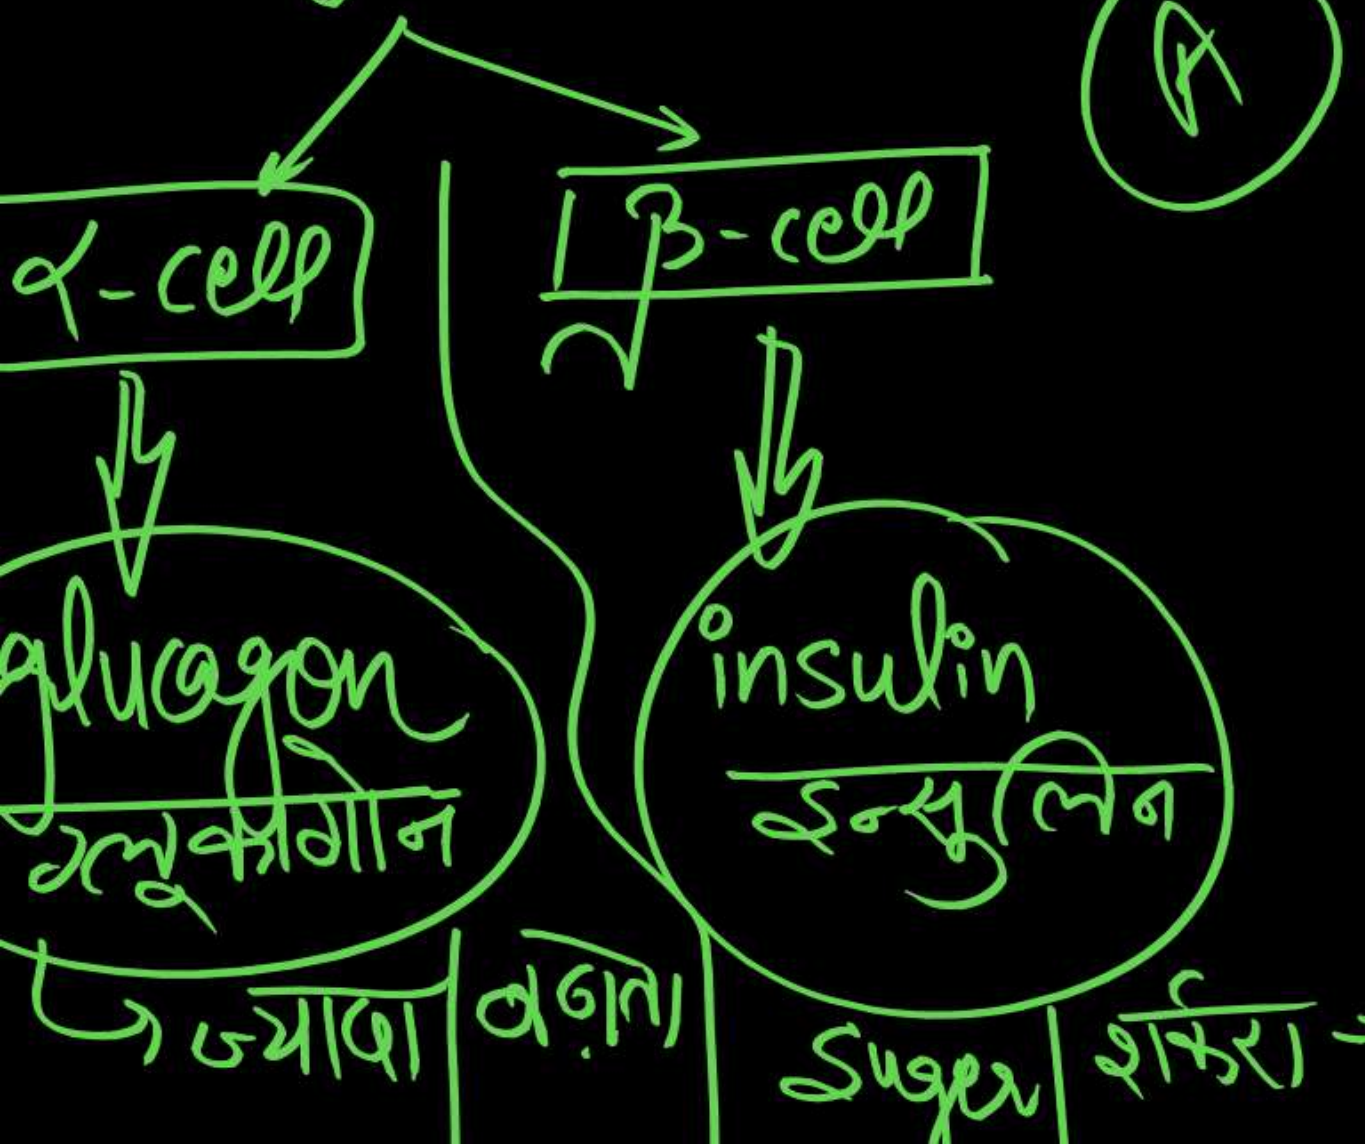 A
α-cell
β-cell
glucagon
ग्लूकागोन
insulin
इन्सुलिन
ज्यादा | बढ़ाता
Suger | शर्करा →